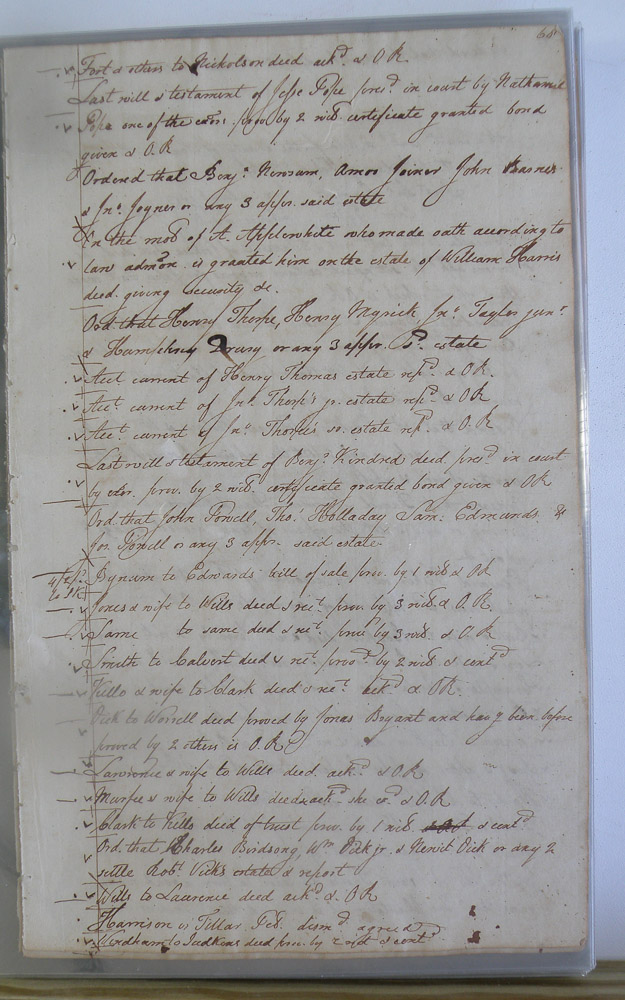 Fort & others to Nicholson deed ackd. & O.R.
Last will & testament of Jesse Pope presd. in court by Nathaniel
Pope one of the exrs. prov. by 2 wits. certificate granted bond
given & O.R
Ordered that Benja. Newsum, Amos Joiner John Barnes
& Jno. Joyner or any 3 appr. said estate
On the mot. of A. Applewhite who made oath according to
law admon. is granted him on the estate of William Harris
decd. giving security &c.
Ord. that Henry Thorpe, Henry Myrick, Jno. Taylor junr.
& Humphrey Drury or any 3 appr. sd. estate
Acct current of Henry Thomas estate retd. & O.R.
Acct. current of Jno. Thorpe's jr. estate retd. & O.R
Acct. current of Jno. Thorpe's sr. estate retd. & O.R
Last will & testament of Benja. Kindred decd. presd. in court
by exor. prov. by 2 wits. certificate granted bond given & O.R
Ord. that John Powell, Tho. Holladay Sam: Edmunds &
Powell or any 3 appr. said estate
Bynum to Edwards bill of sale prov. by 1 wit & O.R
Jones & wife to Wills deed & rect. prov. by 3 wits. & O.R.
Same to same deed & rect. prov. by 3 wits. & O.R
Smith to Calvert deed & rect. provd. by 2 wits. & contd.
Kello & wife to Clark deed & rect. ackd. & O.R.
Dick to Worrell deed proved by Jonas Bryant and havg. been before
proved by 2 others is O.R
Lawrence & wife to Wills deed. ackd. & O.R
Murfee & wife to Wills deed & ackd. she exd. & O.R
Clark to Kello deed of trust prov. by 1 wit. & contd.
Ord. that Charles Birdsong, Wm Vick jr. & Newit Vick or any 2
settle Robt. Vicks estate & report
Wills to Lawrence deed ackd. & O.R
Harrison vs Tillar Pet. dismd. agreed
to Judkins deed prov. by 2 wits & contd